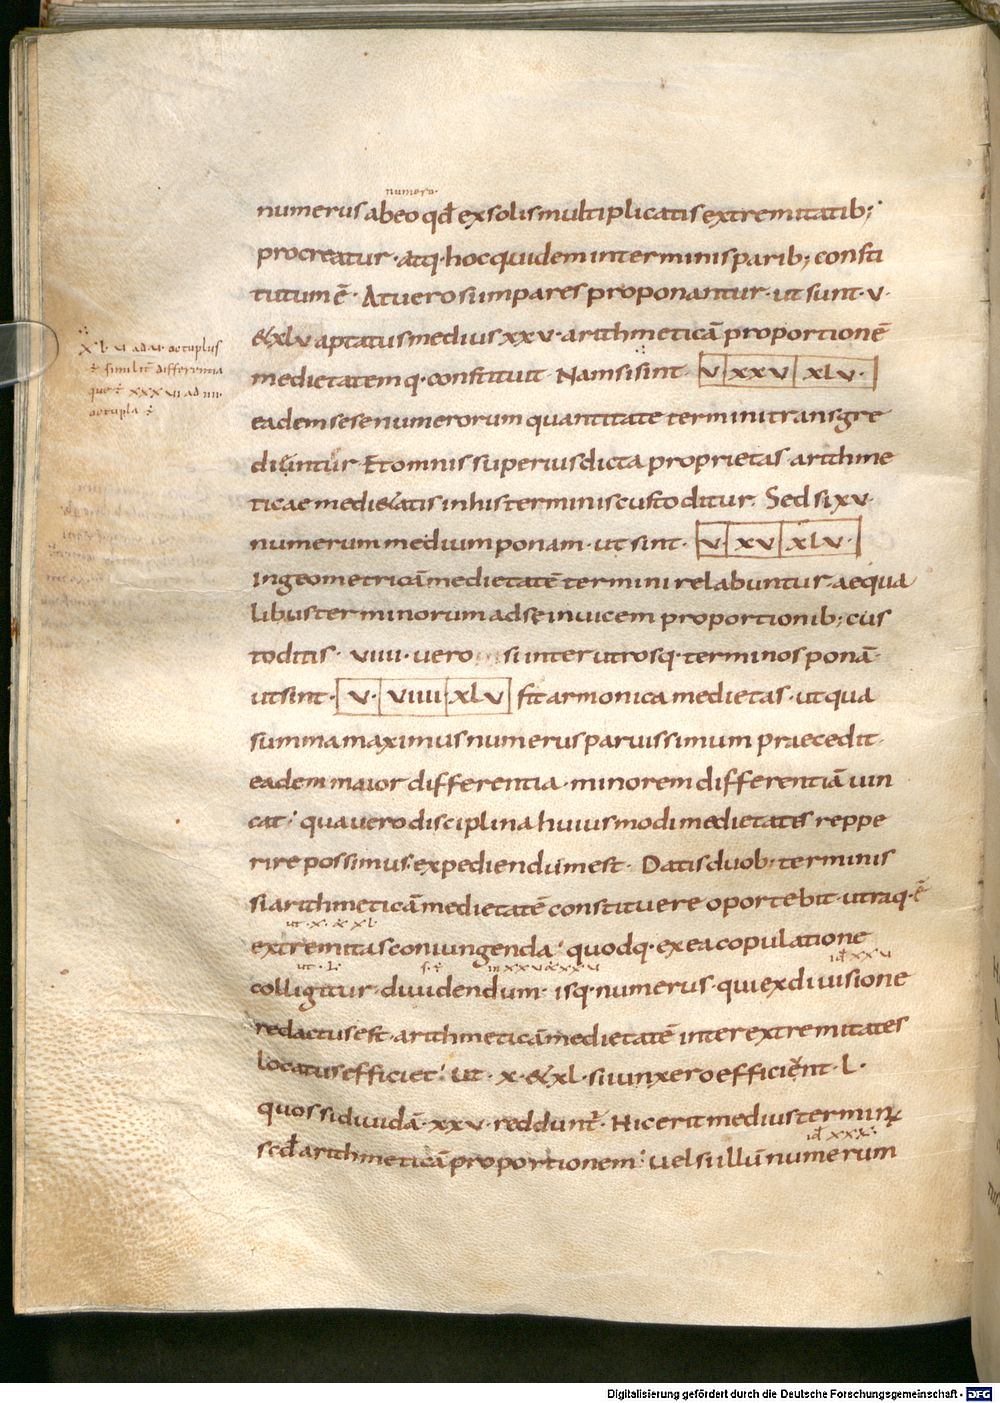 numero·
numerus ab eo qđ ex solis multiplicatis extremitatib;
procreatur· atq· hoc quidem in terminis parib; consti
tutum ē· At vero si impares proponantur· ut sunt· v·
& xlv aptatus medius xxv· arithmeticā proportionē
medietatemq· constituit· Nam si sint· v· xxv xlv·
eadem sese numerorum quantitate termini transgre
diuntur· Et omnis superius dicta proprietas arithme
ticae medi&atis in his terminis custoditur. Sed si xv·
numerum medium ponam· ut sint· v· xv xlv·
in geometricā medietatē termini relabuntur· aequa
libus terminorum ad se invicem proportionib; cus
toditis· viiii· vero si inter utrosq· terminos ponā·
ut sint· v· viiii xlv fit armonica medietas· ut qua
summa maximus numerus parvissimum praecedit·
eadem maior differentia· minorem differentiā vin
cat· qua vero disciplina huiusmodi medietates reppe
rire possimus· expediendum est· Datis duob; terminis
si arithmeticā medietatē constituere oportebit· utraq· ē
ut· x· & xl·
extremitas coniungenda· quodq· ex ea copulatione
ut· l· in xxv & xxv id xxv
colligitur· dividendum· isq· numerus· qui ex divisione
redactus est· arithmeticā medietatē inter extremitates
locatus efficiet· Ut· x· & xl· si iunxero efficient· l·
quos si dividā· xxv· reddunt· Hic erit medius termin
id xxx·
scđ arithmeticā proportionem· vel si illū numerum
xl· v ad· v· octuplus
ē similit differentia
que ē xxxvi ad iiii·
octupla ē
Digitalisierung gefördert durch die Deutsche Forschungsgemeinschaft · DFG